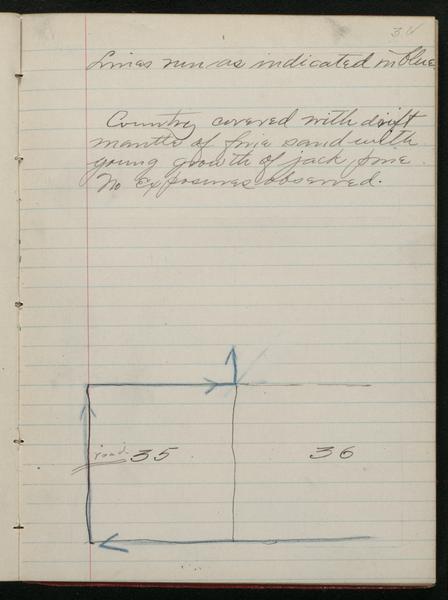 34
Lines run as indicated in blue
Country covered with drift
mantle of fine sand with
young growth of jack pine.
No exposures observed.
road 35 36